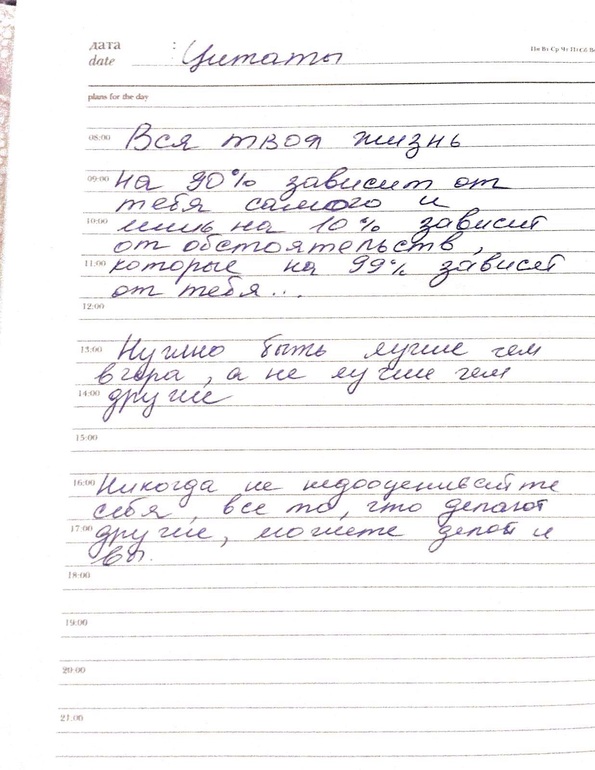 дата : Цитаты
Пн Вт Ср Чт Пт Сб Вс
date
plans for the day
08:00 Вся твоя жизнь
09:00 на 90% зависит от
тебя самого и
10:00 лишь на 10% зависит
от обстоятельств,
11:00 которые на 99% зависят
от тебя...
12:00
13:00 Нужно быть лучше чем
вчера, а не лучше чем
14:00 другие
15:00
16:00 Никогда не недооценивайте
себя, все то, что делают
17:00 другие, можете делать и
вы.
18:00
19:00
20:00
21:00